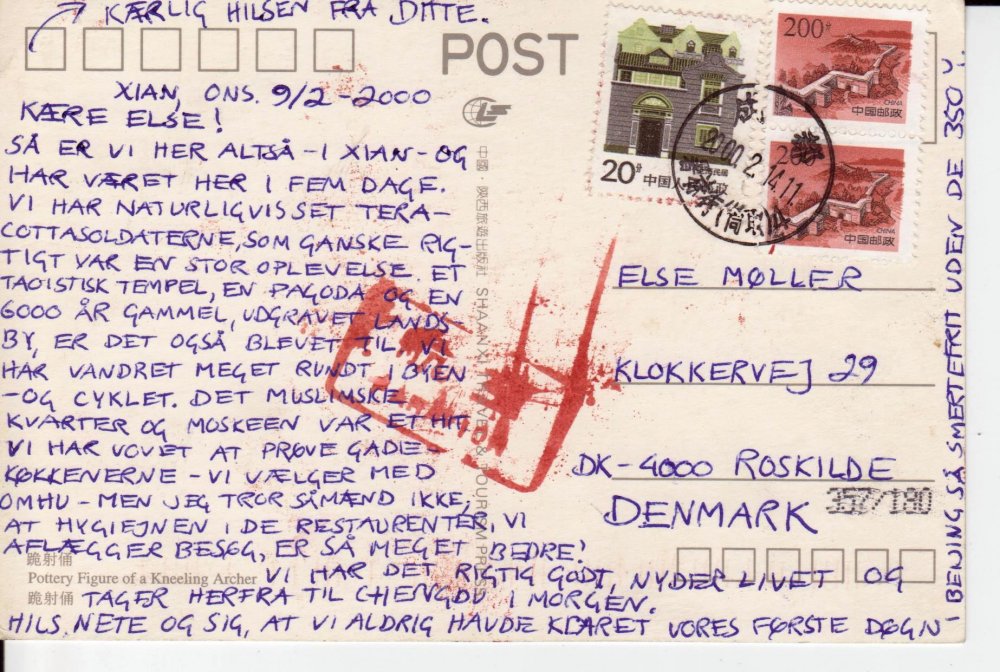 KÆRLIG HILSEN FRA DITTE.
POST
XIAN, ONS. 9/2-2000
KÆRE ELSE!
SÅ ER VI HER ALTSÅ - I XIAN - OG
HAR VÆRET HER I FEM DAGE.
VI HAR NATURLIGVIS SET TERA-
COTTASOLDATERNE, SOM GANSKE RIG-
TIGT VAR EN STOR OPLEVELSE. ET
TAOISTISK TEMPEL, EN PAGODA OG EN
6000 ÅR GAMMEL, UDGRAVET LANDS-
BY, ER DET OGSÅ BLEVET TIL. VI
HAR VANDRET MEGET RUNDT I BYEN
- OG CYKLET. DET MUSLIMSKE
KVARTER OG MOSKEEN VAR ET HIT.
VI HAR VOVET AT PRØVE GADE-
KØKKENERNE - VI VÆLGER MED
OMHU - MEN JEG TROR SÅMÆND IKKE,
AT HYGIEJNEN I DE RESTAURENTER, VI
AFLÆGGER BESØG, ER SÅ MEGET BEDRE!
VI HAR DET RIGTIG GODT, NYDER LIVET OG
TAGER HERFRA TIL CHENGDU I MORGEN.
HILS NETE OG SIG, AT VI ALDRIG HAVDE KLARET VORES FØRSTE DØGN
I BEIJING SÅ SMERTEFRIT UDEN DE 350 Y.
跪射俑
Pottery Figure of a Kneeling Archer
跪射俑
中國 陝西旅遊出版社 SHAANXI TRAVEL & TOURISM PRESS
20分
中国人民邮政
200分
CHINA
中国邮政
200
CHINA
中国邮政
2000.2.14.11
ELSE MØLLER
KLOKKERVEJ 29
DK-4000 ROSKILDE
DENMARK
357/180